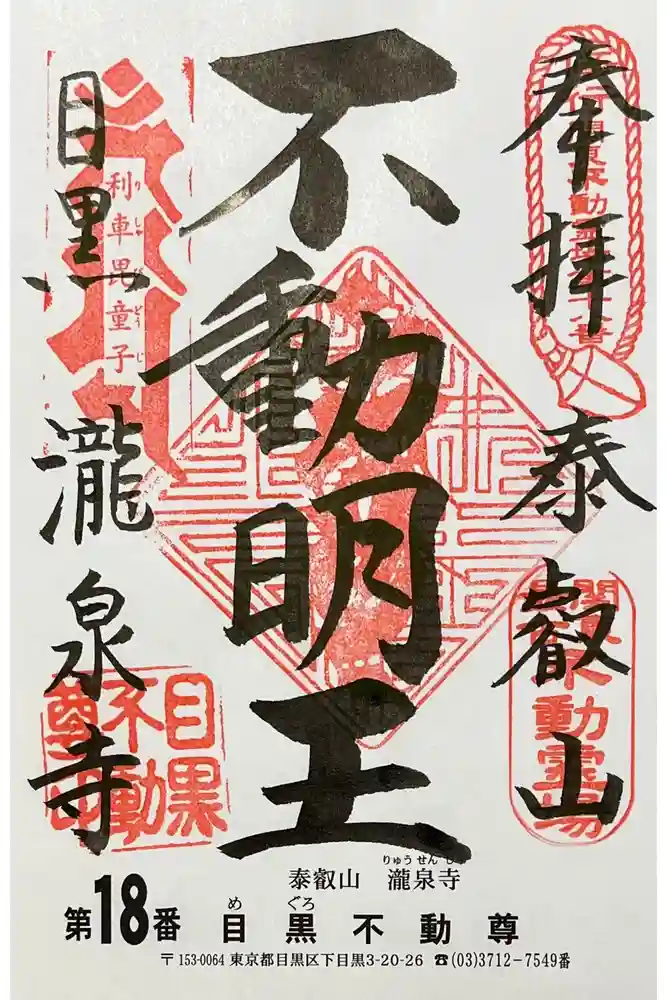 奉拝 泰叡山
不動明王
目黒 瀧泉寺
利車毘童子
りしゃびどうじ
関東不動霊場
目黒不動尊印
りゅうせんじ
泰叡山 瀧泉寺
めぐろ
第18番 目黒不動尊
〒153-0064 東京都目黒区下目黒3-20-26 ☎(03)3712-7549番